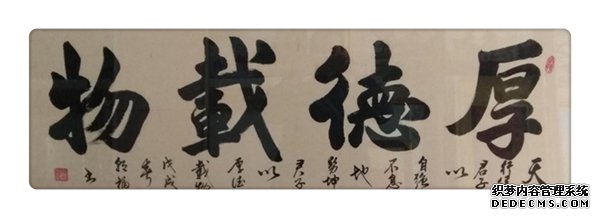 厚德載物
天行健君子以自強不息地勢坤君子以厚德載物戊戌春
书
织梦内容管理系统
DEDECMS.COM